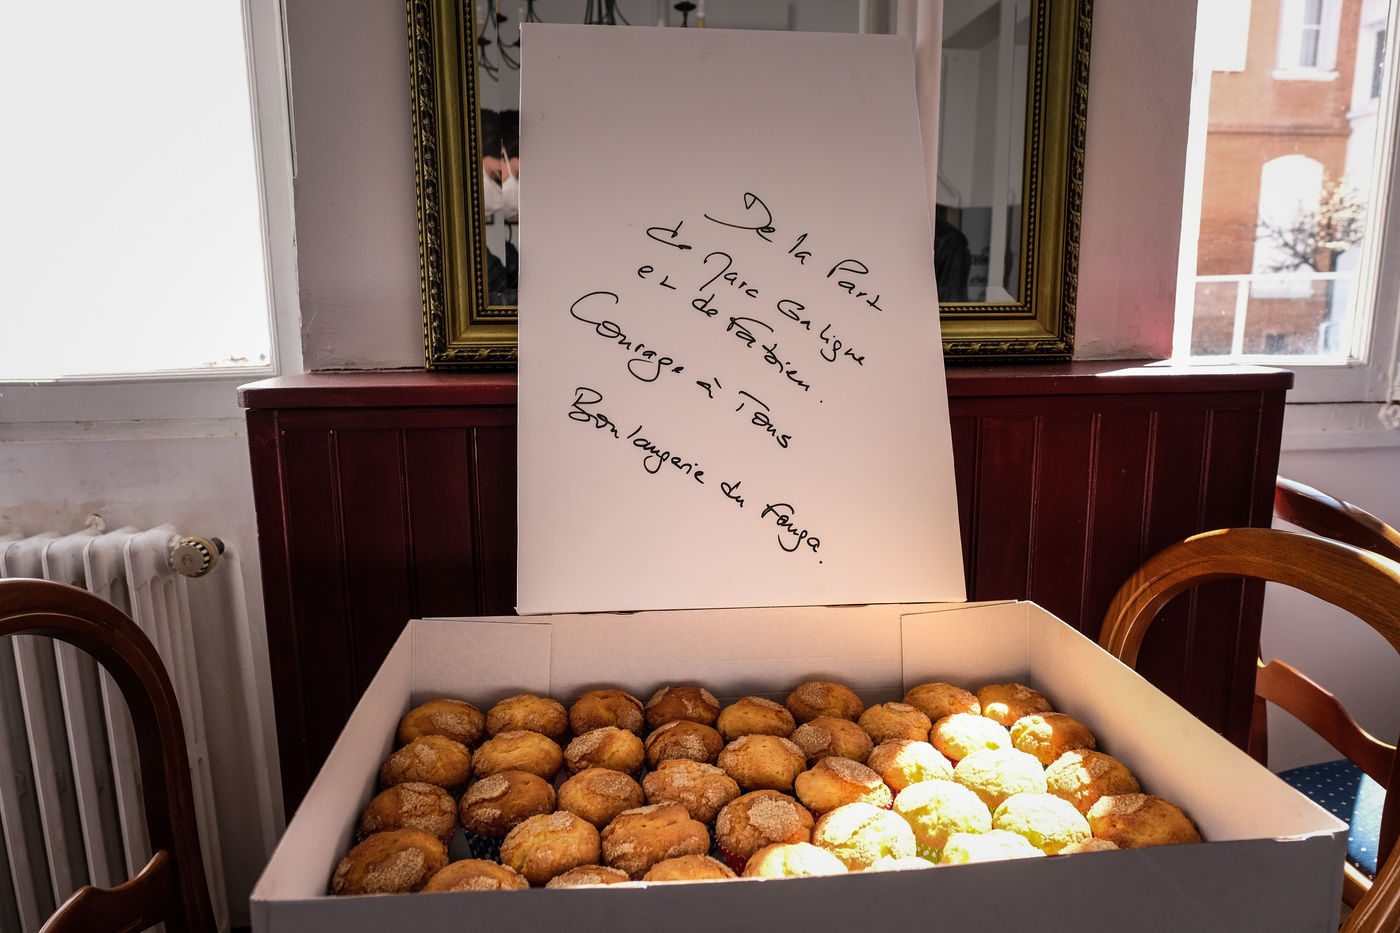 De la Part
de Marc Galigne
et de Fabien.
Courage à Tous
Boulangerie du Fouga.